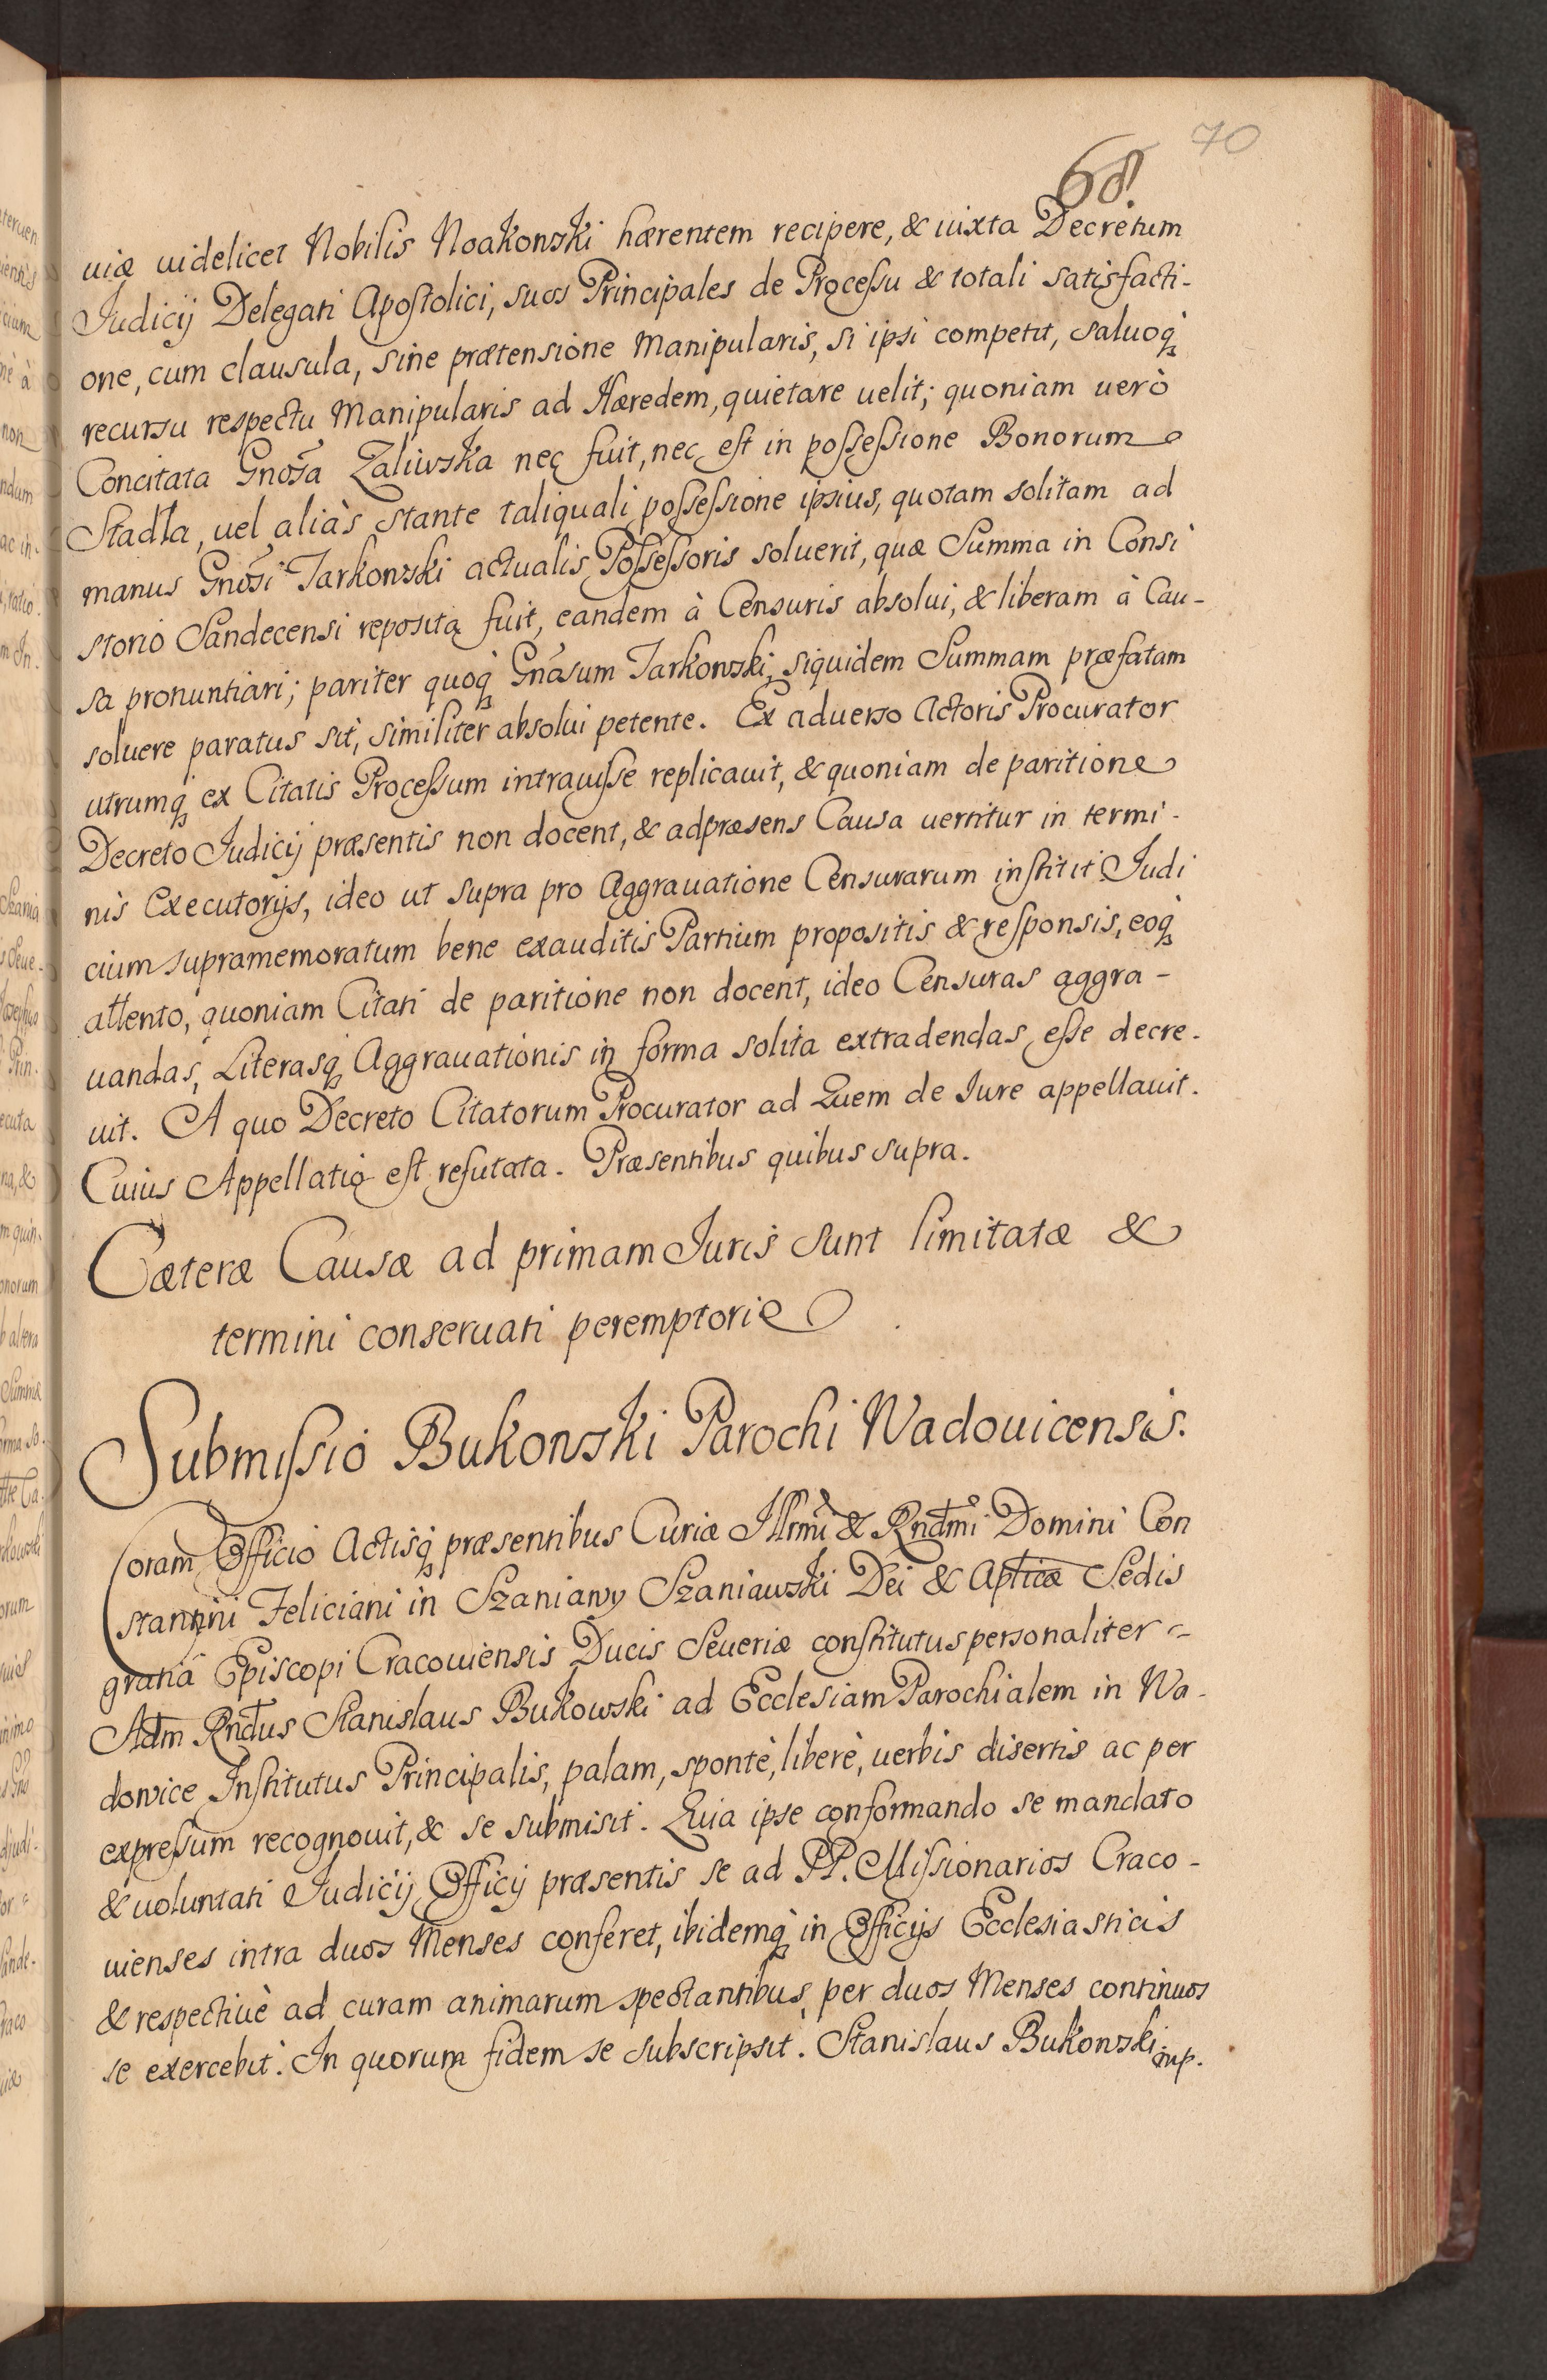 70
68
uiæ uidelicet Nobilis Noakowski hærentem recipere, & iuxta Decretum
Judicij Delegati Apostolici, suos Principales de Processu & totali satisfacti-
one, cum clausula, sine prætensione Manipularis, si ipsi competit, saluoq̃
recursu respectu Manipularis ad Hæredem, quietare uelit; quoniam uerò
Concitata Gnõsa Zaliwska nec fuit, nec est in possessione Bonorum
Stadła, uel aliàs stante taliquali possessione ipsius, quotam solitam ad
manus Gnõsi Tarkowski actualis Possessoris soluerit, quæ Summa in Consi
storio Sandecensi reposita fuit, eandem à Censuris absolui, & liberam à Cau-
sa pronuntiari; pariter quoq̃ Gnõsum Tarkowski, siquidem Summam præfatam
soluere paratus sit, similiter absolui petente. Ex aduerso Actoris Procurator
utrumq̃ ex Citatis Processum intrauisse replicauit, & quoniam de paritione
Decreto Judicij præsentis non docent, & adpræsens Causa uertitur in termi-
nis Executorijs, ideo ut supra pro Aggrauatione Censurarum institit Judi
cium supramemoratum bene exauditis Partium propositis & responsis, eoq̃
attento, quoniam Citati de paritione non docent, ideo Censuras aggra-
uandas, Literasq̃ Aggrauationis in forma solita extradendas esse decre-
uit. A quo Decreto Citatorum Procurator ad Quem de Jure appellauit.
Cuius Appellatio est refutata. Præsentibus quibus supra.
Cæteræ Causæ ad primam Juris sunt limitatæ &
termini conseruati peremptorie
Submissio Bukowski Parochi Wadouicensis.
Coram Officio Actisq̃ præsentibus Curiæ Illrmi & Rndmi Domini Con
stantini Feliciani in Szaniawy Szaniawski Dei & Aplicæ Sedis
gratiâ Episcopi Cracouiensis Ducis Seueriæ constitutus personaliter
Adm Rndus Stanislaus Bukowski ad Ecclesiam Parochialem in Wa-
dowice Institutus Principalis, palam, spontè, liberè, uerbis disertis ac per
expressum recognouit, & se submisit. Quia ipse conformando se mandato
& uoluntati Judicij Officij præsentis se ad PP. Missionarios Craco-
uienses intra duos Menses conferet, ibidemq̃ in Officijs Ecclesiasticis
& respectiuè ad curam animarum spectantibus, per duos Menses continuos
se exercebit. In quorum fidem se subscripsit. Stanislaus Bukowski mp.